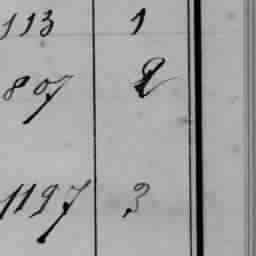 113 1
807 2
1197 3